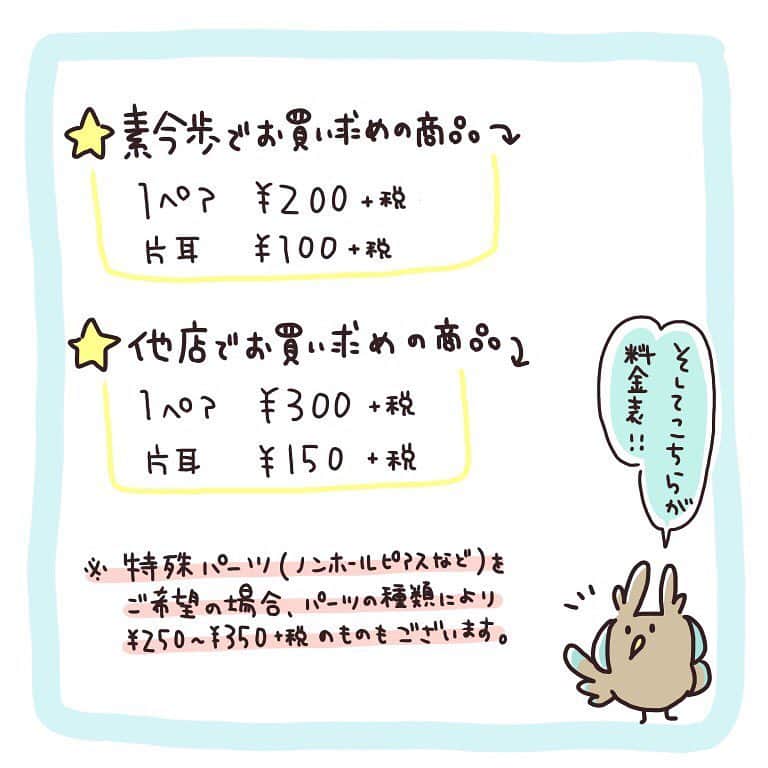 素今歩でお買い求めの商品
1ペア ¥200+税
片耳 ¥100+税
他店でお買い求めの商品
1ペア ¥300+税
片耳 ¥150+税
※特殊パーツ(ノンホールピアスなど)を
ご希望の場合、パーツの種類により
¥250~¥350+税のものもございます。
そしてこちらが
料金表!!